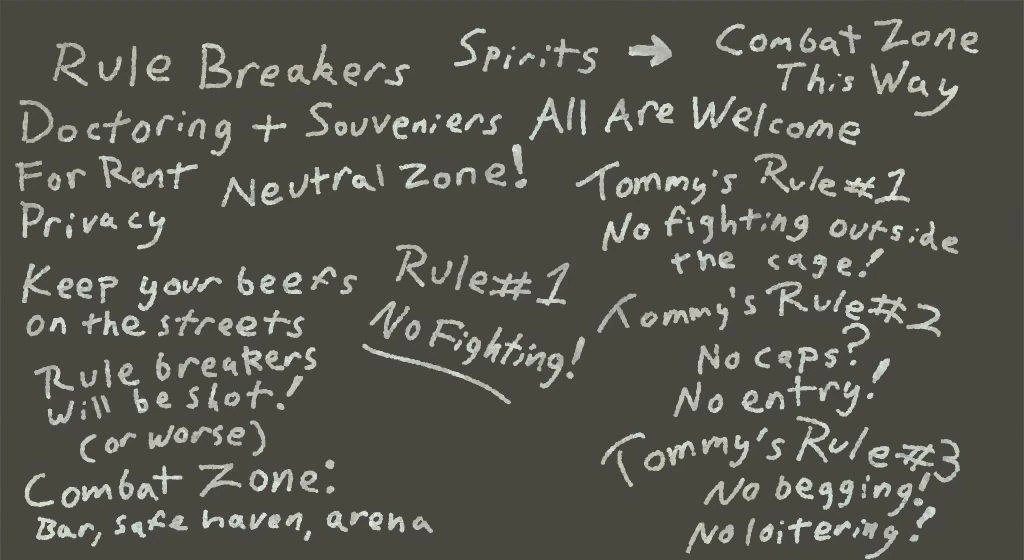 Rule Breakers
Spirits →
Combat Zone
This Way
Doctoring + Souveniers
All Are Welcome
For Rent
Neutral Zone!
Privacy
Tommy's Rule #1
No fighting outside
the cage!
Keep your beefs
on the streets
Rule #1
No Fighting!
Rule breakers
will be shot!
(or worse)
Tommy's Rule #2
No caps?
No entry!
Combat Zone:
Bar, safe haven, arena
Tommy's Rule #3
No begging!
No loitering!